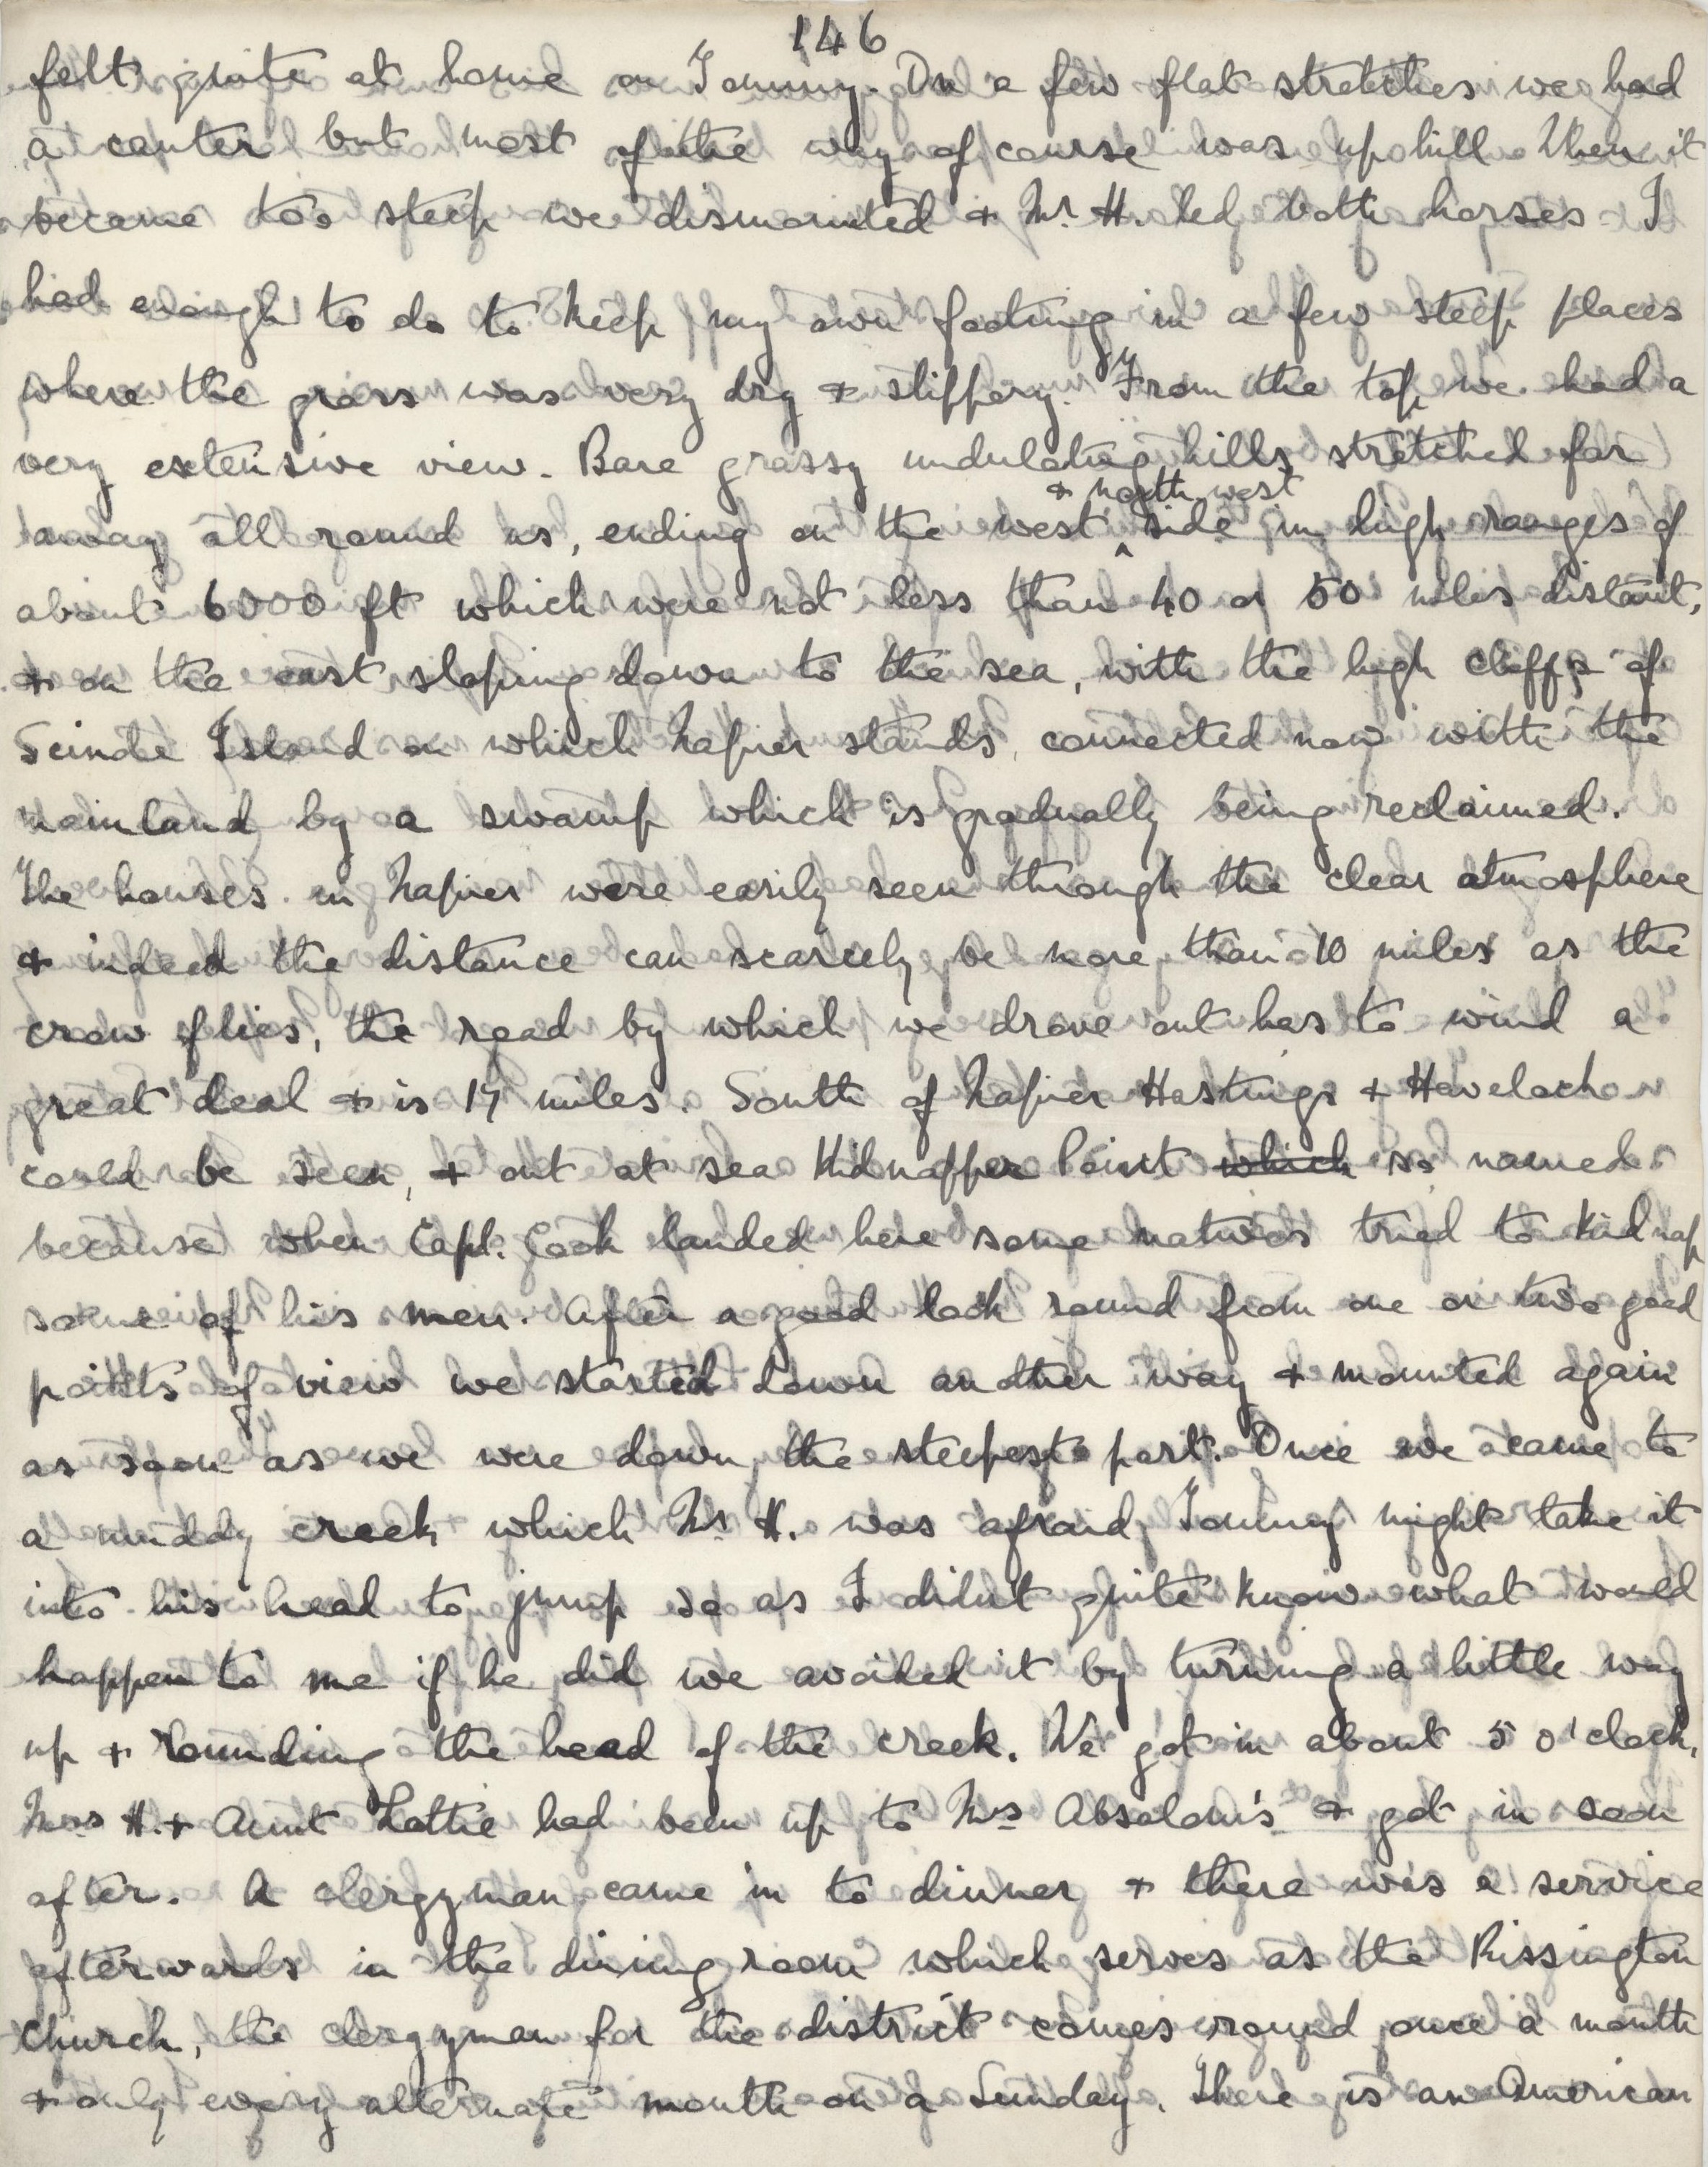 146
felt quite at home on Tommy. On a few flat stretches we had
a canter but most of the way of course was up hill When it
became too steep we dismounted + Mr. H. led both horses. I
had enough to do to keep my own footing in a few steep places
where the grass was very dry + slippery. From the top we had a
very extensive view. Bare grassy undulating hills stretched far
+ north west
away all round us, ending on the west ^ side in high ranges of
about 6000 ft which were not less than 40 or 50 miles distant,
+ on the east sloping down to the sea, with the high cliffs of
Scinde Island on which Napier stands, connected now with the
mainland by a swamp which is gradually being reclaimed.
The houses in Napier were easily seen through the clear atmosphere
+ indeed the distance can scarcely be more than 10 miles as the
crow flies, the road by which we drove out has to wind a
great deal + is 17 miles. South of Napier Hastings + Havelock
could be seen, + out at sea Kidnapper Point which so named
because when Capt. Cook landed here some natives tried to kidnap
some of his men. After a good look round from one or two good
points of view we started down another way + mounted again
as soon as we were down the steepest part. Once we came to
a muddy creek which Mr H. was afraid Tommy might take it
into his head to jump so as I didn't quite know what would
happen to me if he did we avoided it by turning a little way
up + rounding the head of the creek. We got in about 5 o'clock.
Mrs H. + Aunt Lottie had been up to Mrs Absalom's + got in soon
after. A clergyman came in to dinner + there was a service
afterwards in the dining room which serves as the Rissington
Church, the clergyman for the district comes round once a month
+ only every alternate month on a Sunday. There is an American